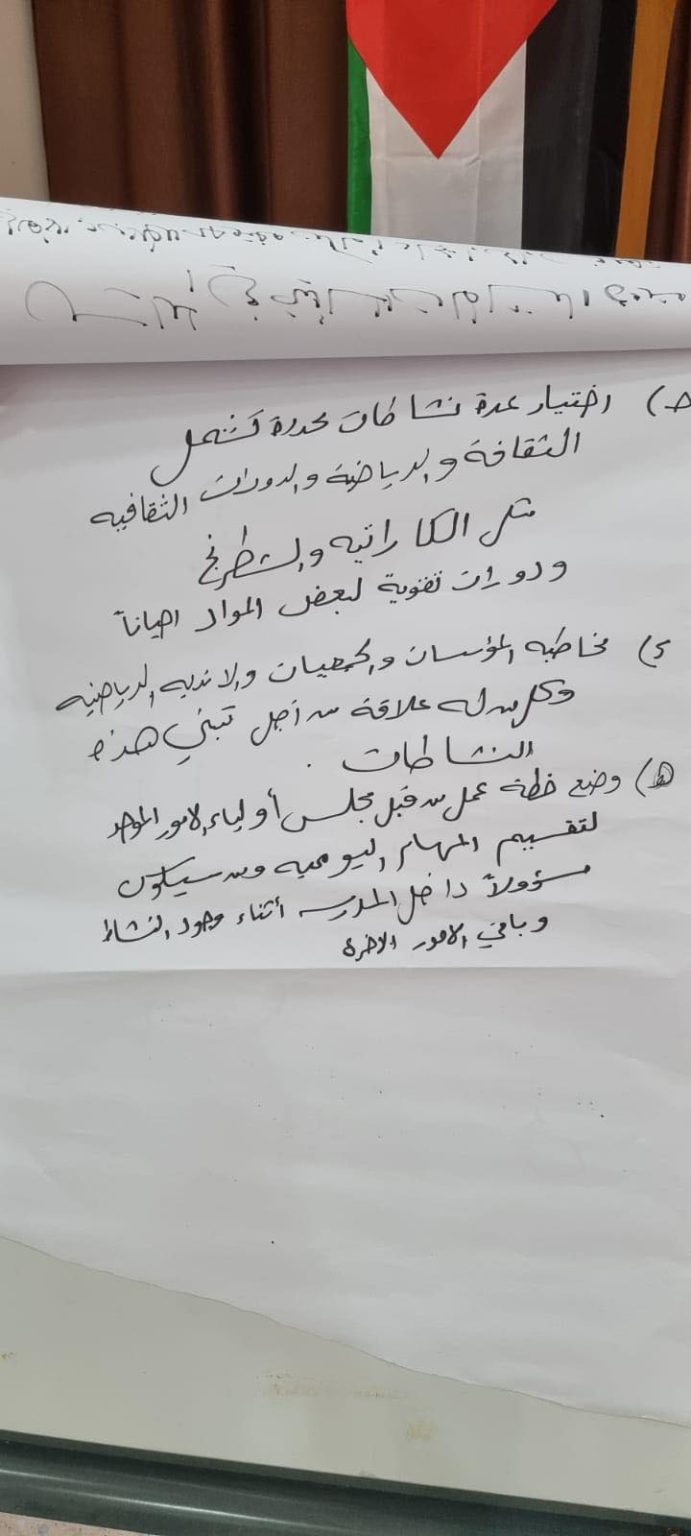 ج) اختيار عدة نشاطات محددة تشمل
الثقافة والرياضة والدورات الثقافيه
مثل الكاراتيه والشطرنج
ودورات تقوية لبعض المواد احياناً
د) مخاطبه المؤسسات والجمعيات والانديه الرياضيه
وكل من له علاقة من أجل تبني هذه
النشاطات .
هـ) وضع خطة عمل من قبل مجلس أولياء الامور الموحد
لتقسيم المهام اليوميه ومن سيكون
مسؤولاً داخل المدرسه أثناء وجود النشاط
وباقي الامور الاخرة